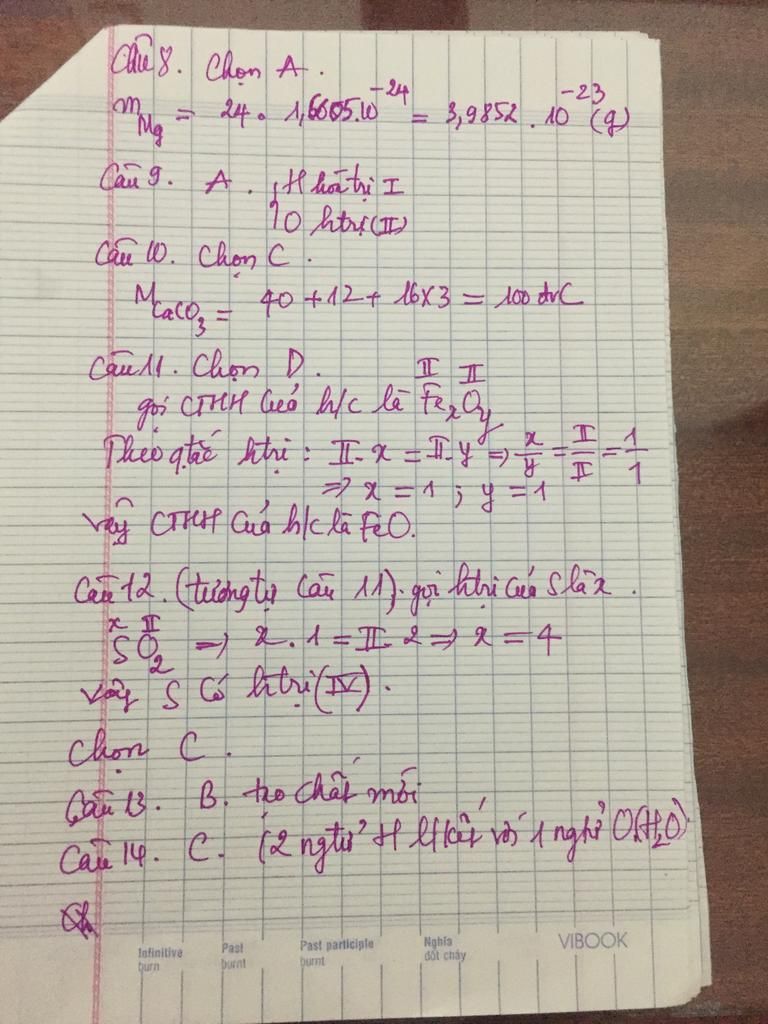 Câu 8. Chọn A.
m Mg = 24. 1,6605.10⁻²⁴ = 3,9852.10⁻²³ (g)
Câu 9. A. H hoá trị I
O htrị (II)
Câu 10. Chọn C.
M CaCO₃ = 40 + 12 + 16x3 = 100 đvC
Câu 11. Chọn D.
II II
gọi CTHH của h/c là FexOy
Theo qtắc htrị: II. x = II. y => x/y = II/II = 1/1
=> x = 1; y = 1
Vậy CTHH của h/c là FeO.
Câu 12. (tương tự câu 11). gọi htrị của S là x.
x II
SO₂ => x. 1 = II. 2 => x = 4
Vậy S có htrị (IV).
Chọn C.
Câu 13. B. tạo chất mới
Câu 14. C. (2 ngtử H lkết với 1 ngtử O (H₂O)
Infinitive Past Past participle Nghĩa VIBOOK
burn burnt burnt đốt cháy